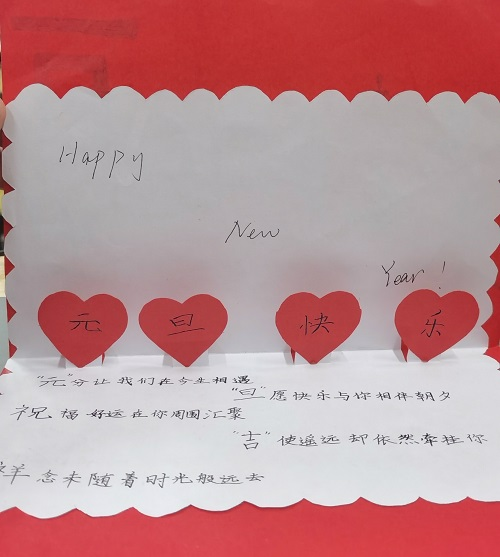 Happy
New
Year!
元 旦 快 乐
"元"分让我们在今生相遇
"旦"愿快乐与你相伴朝夕
祝福好运在你周围汇聚
"吉"使遥远却依然牵挂你
羊念未随着时光般远去